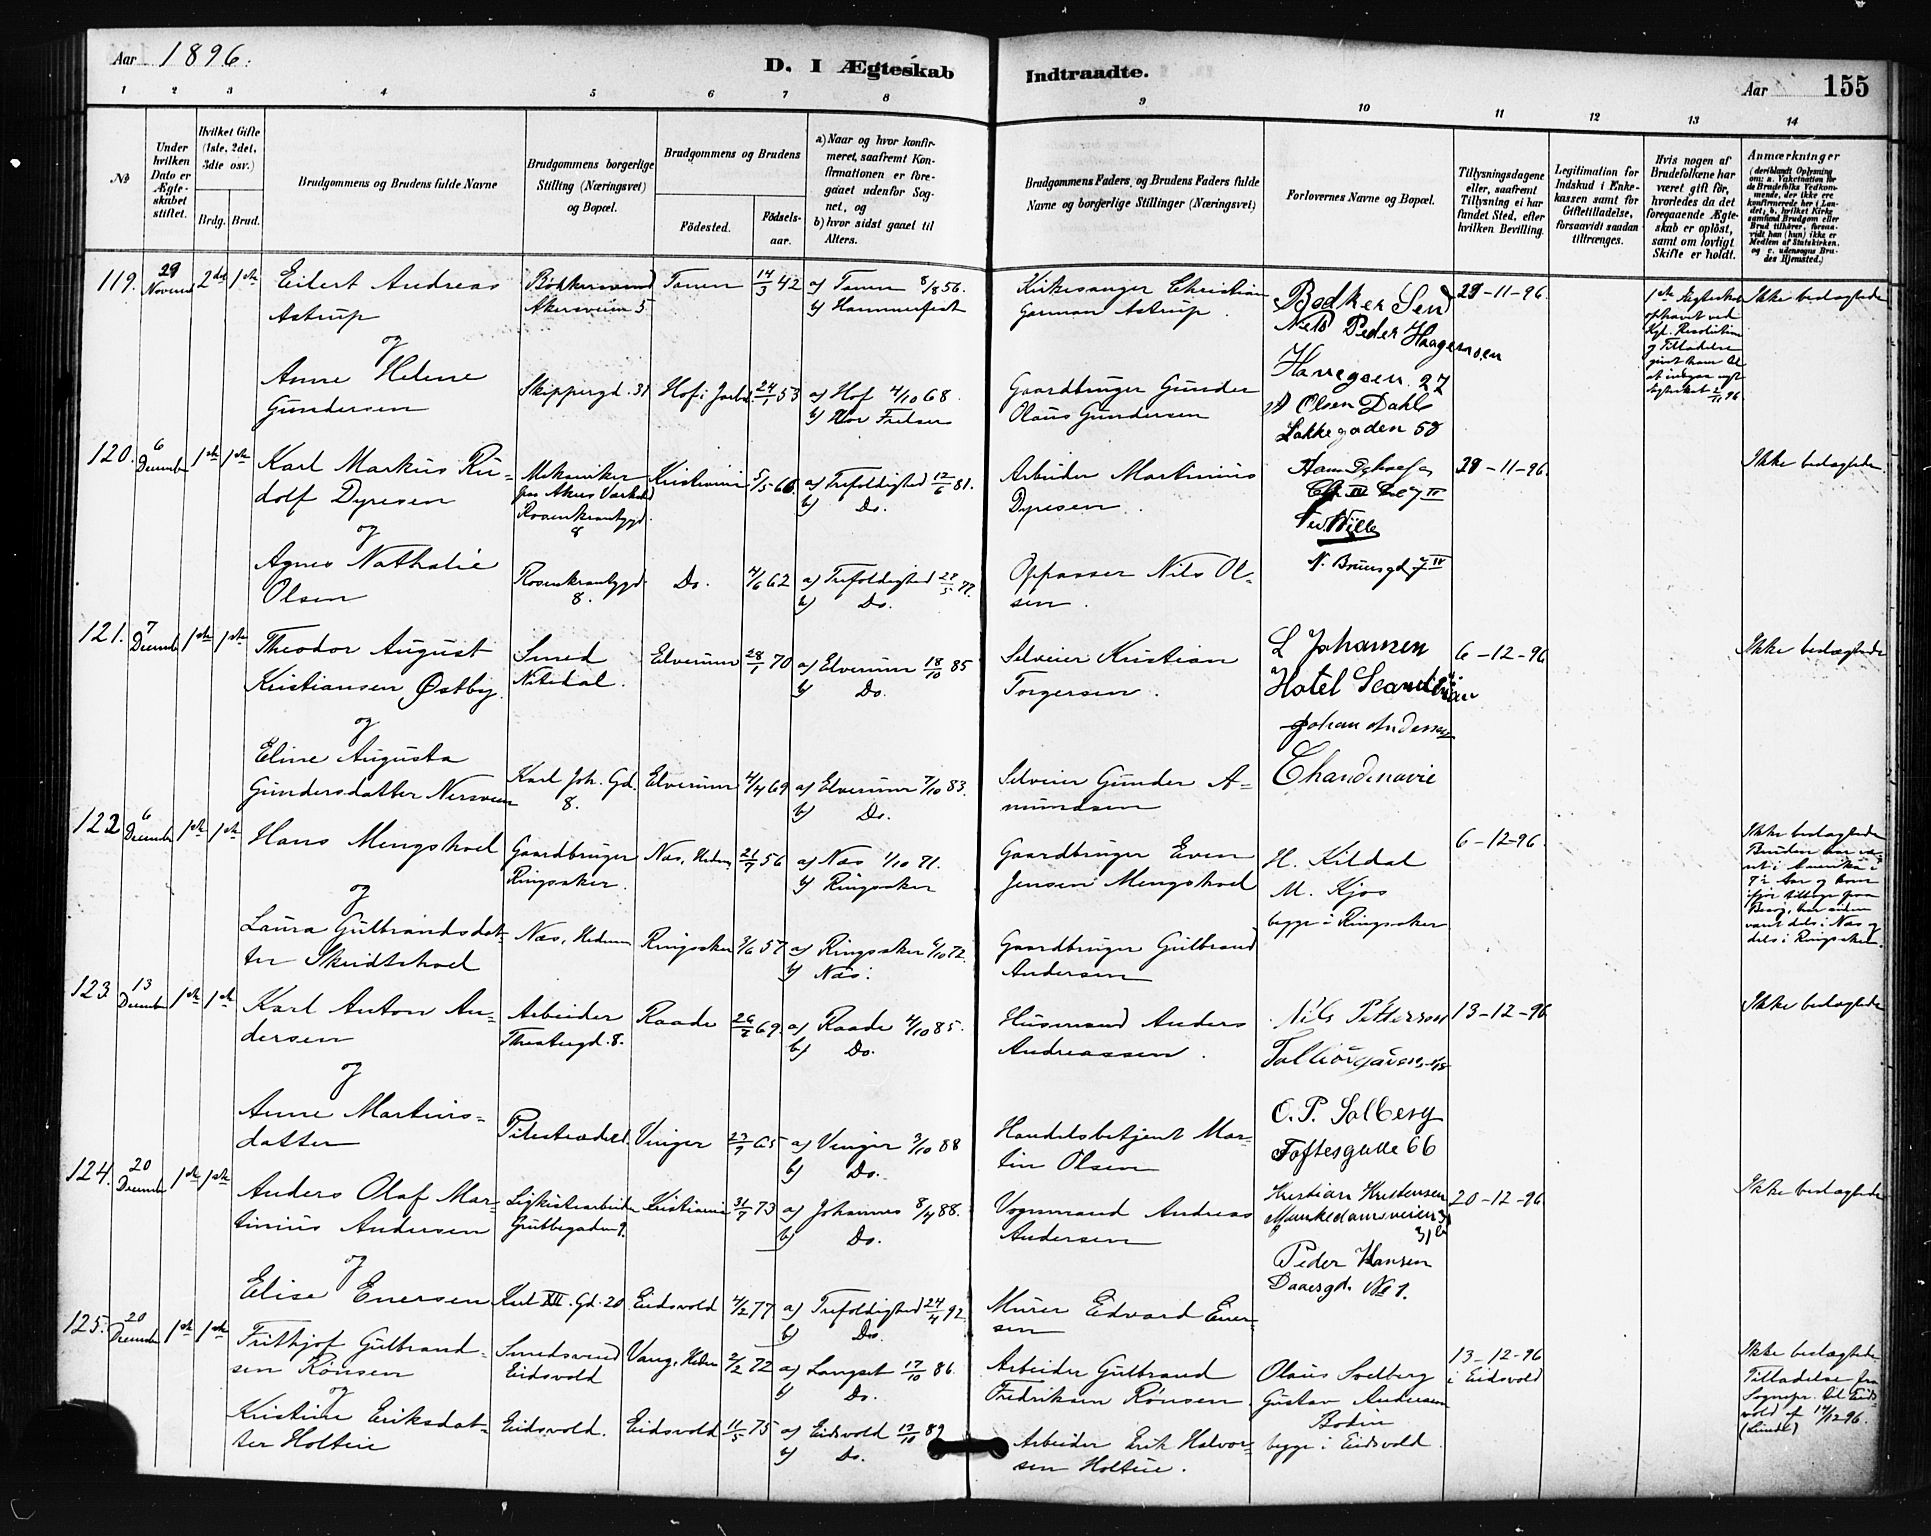 Aar 1896.
D. I Ægteskab
Indtraadte.
Aar 155
1 2 3 4 5 6 7 8 9 10 11 12 13 14
No
Under hvilken Dato er Ægteskabet stiftet.
Hvilket Gifte (1ste, 2det, 3die osv.)
Brdg. Brud.
Brudgommens og Brudens fulde Navne
Brudgommens borgerlige Stilling (Næringsvei) og Bopæl.
Brudgommens og Brudens
Födested. Födselsaar.
a) Naar og hvor konfirmeret, saafremt Konfirmationen er foregaaet udenfor Sognet, og
b) hvor sidst gaaet til Alters.
Brudgommens Faders og Brudens Faders fulde Navne og borgerlige Stillinger (Næringsvei)
Forlovernes Navne og Bopæl.
Tillysningsdagene eller, saafremt Tillysning ei har fundet Sted, efter hvilken Bevilling.
Legitimation for Indskud i Enkekassen samt for Giftetilladelse, forsaavidt saadan tiltrænges.
Hvis nogen af Brudefolkene har været gift för, hvorledes da det foregaaende Ægteskab er oplöst, samt om lovligt Skifte er holdt.
Anmærkninger
119. 29 Novemb 2det 1ste
Eilert Andreas
Astrup
Akersveien 5
14/3 42
8/8 56.
b) Hammerfest
Kirkesanger Christian
Garman Astrup.
Bödker Send
Nels Peder Haagensen
27
Olsen Dahl
Lakkegaden 58
29-11-96.
Ikke beslægtede
og
Anne Helene
Gundersen
Skippergd. 31
24/1 53
a) Hof 4/10 68.
b) Vor Frelser
Gaardbruger Gunder
Olaus Gundersen
120. 6 December 1ste 1ste
Karl Markus Ru-
dolf Dyresen
Mekaniker
Rosenkrantzgd.
8
Kristiania
5/5 66
a) Trefoldighed 12/6 81.
b) Do.
Arbeider Martinius
Dyresen.
29-11-96.
Ikke beslægtede.
og
Agnes Nathalie
Olsen
Rosenkrantzgd.
8.
Do.
4/6 62
a) Trefoldighed 27/5 77.
b) Do.
Oppasser Nils Ol-
sen.
121. 7 Decemb 1ste 1ste
Theodor August
Kristiansen Østby
Smed
Nitedal.
Elverum
28/1 70
a) Elverum 18/10 85
b) Do.
Selveier Kristian
Torgersen.
L Johansen
Hotel Scandinavian
Johan Andersen
6-12-96
Ikke beslægtede
og
Eline Augusta
Gundersdatter Nersveen
Karl Joh. Gd.
8.
Elverum
4/4 69
a) Elverum 7/10 83.
b) Do.
Selveier Gunder A-
mundsen
122 6 December 1ste 1ste
Hans Mengshoel
Gaardbruger
Ringsaker.
Næs, Hedem.
21/7 56
a) Næs 1/10 71.
b) Ringsaker
Gaardbruger Even
Jensen Mengshoel
H. Kildal
M. Kjos
begge i Ringsaker
6-12-96.
Ikke beslægtede
og
Laura Gulbrandsdat-
ter Skridtshoel
Næs, Hedem.
Ringsaker
a) Ringsaker 6/10 72.
b) Næs.
Gaardbruger Gulbrand
Andersen
123 13 December 1ste 1ste
Karl Anton An-
dersen
Arbeider
Theatergd. 8.
Raade
a) Raade 4/10 85.
b) Do.
Husmand Anders
Andreassen.
Nils Petterson
O. P. Solberg
Toftesgade 66
13-12-96
Ikke beslægtede
og
Anne Martins-
datter
Pilestrædet.
Vinger
a) Vinger 3/10 88
b) Do.
Handelsbetjent Mar-
tin Olsen
124. 20 December 1ste 1ste
Anders Olaf Mar-
tinius Andersen
Ligkistearbeider
Grubbegaden 9.
Kristiania
31/7 73
a) Johannes 8/4 88.
b) Do.
Vognmand Andreas
Andersen
Kristian Kristensen
Munkedamsveien
31b
Peder Hansen
Daaesgd. No 1.
20-12-96
Ikke beslægtede
og
Elise Enersen
Karl XII. Gd. 20
Eidsvold
4/2 77
a) Trefoldighed 24/4 92
b) Do.
Murer Edvard Ener-
sen
125. 20 December 1ste 1ste
Frithjof Gulbrand-
sen Rönsen
Smedsvend
Eidsvold
Vang, Hedem
2/2 72
a) Langset 17/10 86.
b) Do.
Arbeider Gulbrand
Fredriksen Rönsen.
Olaus Solberg
Gustav Andersen
Boden
begge i Eidsvold.
13-12-96
i Eidsvold
Ikke beslægtede
Tilladelse fra
Sognepr. til Eids-
vold af 14/12 96.
(Linde)
og
Kristine Eriksdat-
ter Holteie
Eidsvold.
Eidsvold
11/5 75
a) Eidsvold 13/10 89
b) Do.
Arbeider Erik Halvor-
sen Holteie.